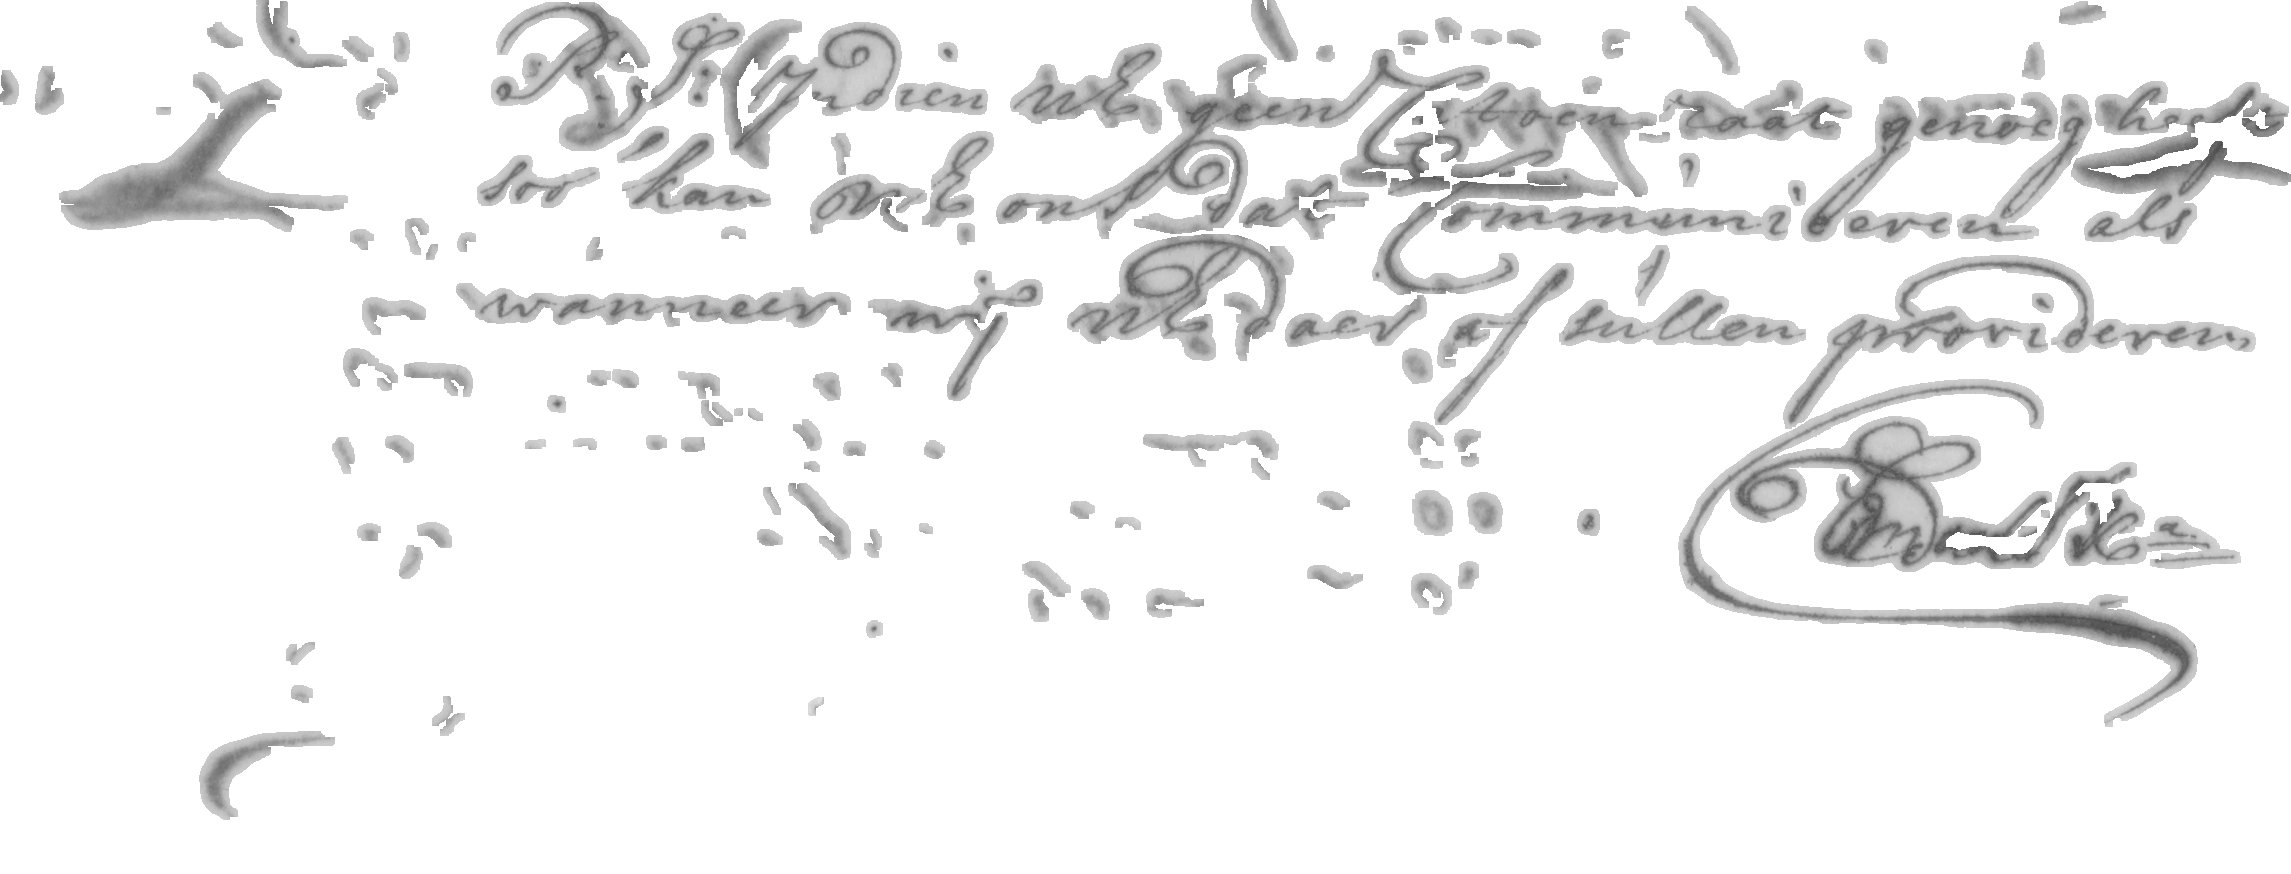 P: S: Indien UE geen Catoen zaat genoeg heeft
soo kan UE ons dat Communiceren als
wanneer wij UE daer af sullen provideren